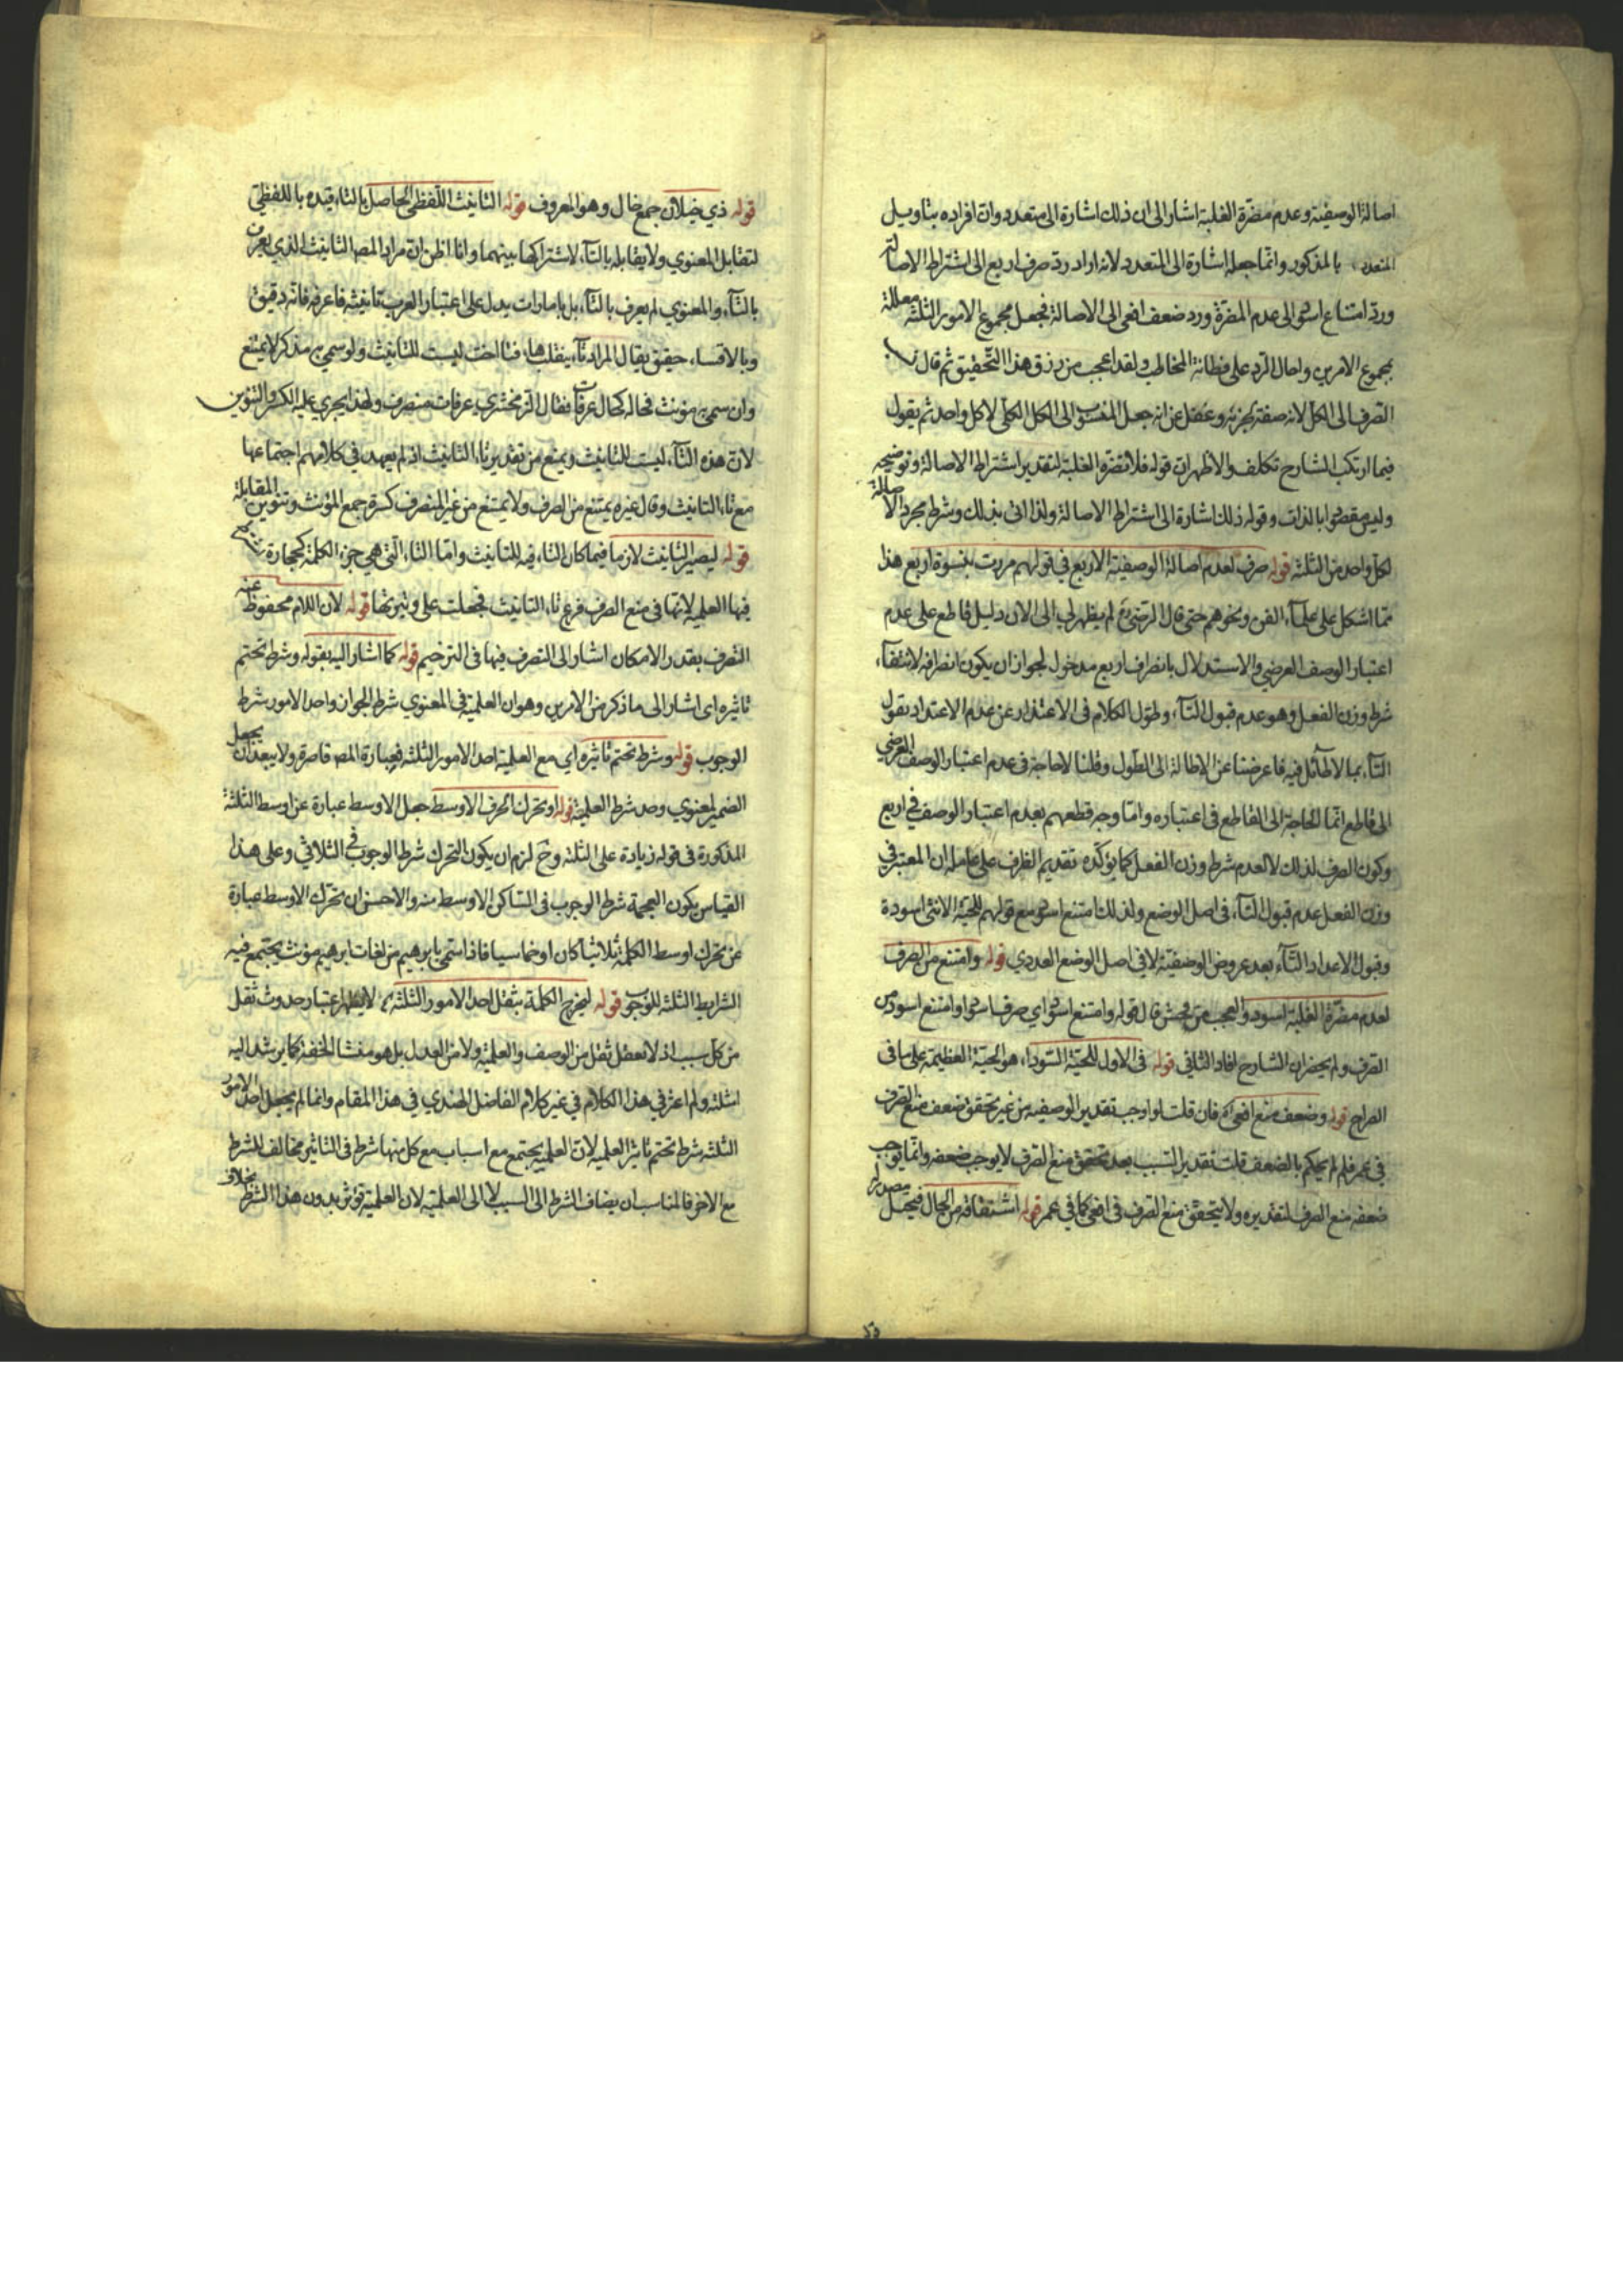 اصالة الوصفية وعدم مضرة الغلبة اشار الى ان ذلك اشارة الى متعدد وان افراده بتاويل
المتعدد بالمذكور وانما جعله اشارة الى المتعدد لانه اراد رد صرف اربع الى اشتراط الاصالة
ورد امتناع اسود الى عدم المضرة ورد ضعف افعى الى الاصالة فجعل مجموع الامور الثلثة معللة
بمجموع الامرين واحال الرد على فطانة المخاطب ولقد اعجب من رزق هذا التحقيق ثم قال
الصرف الى الكل لانه صفة بجزئه وغفل عن انه جعل المنسوب الى الكل الكل لا كل واحد ثم يقول
فيما ارتكب الشارح تكلف والاظهر ان قوله فلا تضره الغلبة لتقدير اشتراط الاصالة وتوضيحه
وليس مقصودا بالذات وقوله ذلك اشارة الى اشتراط الاصالة ولذا اتى بذلك وشرط مجرد الاصالة
لكل واحد من الثلثة قوله صرف لعدم اصالة الوصفية الاربع في قولهم مررت بنسوة اربع هذا
مما اشكل على علماء الفن ونحوهم حتى قال الرضي لم يظهر لي الى الان دليل قاطع على عدم
اعتبار الوصف العرضي والاستدلال بانصراف اربع مدخول لجواز ان يكون انصرافه لانتفاء
شرط وزن الفعل وهو عدم قبول التاء وطول الكلام في الاعتذار عن عدم الاعتداد بقول
التاء بما لا طائل فيه فاعرضنا عن الاطالة الى الطول وقلنا لا حاجة في عدم اعتبار الوصف العرضي
الى قاطع انما الحاجة الى القاطع في اعتباره واما وجه قطعهم بعدم اعتبار الوصف في اربع
وكون الصرف لذلك لا لعدم شرط وزن الفعل كما يؤكده تقديم الظرف على عامله ان المعتبر في
وزن الفعل عدم قبول التاء في اصل الوضع ولذلك امتنع اسود مع قولهم للحية الانثى اسودة
وقبول الاعداد التاء بعد عروض الوصفية لا في اصل الوضع العددي قوله وامتنع من الصرف
لعدم مضرة الغلبة اسود والعجب من محش قال قوله وامتنع اسود اي صرف اسود او امتنع اسود من
الصرف ولم يحضر ان الشارح افاد الثاني قوله في الاول للحية السوداء هو الحية العظيمة على ما في
الصراح قوله وضعف منع افعى فان قلت لو اوجب تقدير الوصفية من غير تحقق ضعف منع الصرف
في عمر فلم لم يحكم بالضعف قلت تقدير السبب بعد تحقق منع الصرف لا يوجب ضعفه وانما يوجب
ضعفه منع الصرف لتقديره ولا يتحقق منع الصرف في افعى كما في عمر قوله اشتقاقه من الجمال فيجعل مصدر
قوله ذي خيلان جمع خال وهو المعروف قوله التانيث اللفظي الحاصل بالتاء قيده باللفظي
لتقابل المعنوي ولا يقابله بالتاء لاشتراكها بينهما وانا اظن ان مراد المص التانيث الذي يعرف
بالتاء والمعنوي لم يعرف بالتاء بل بامارات يدل على اعتبار العرب تانيثه فاعرفه فانه دقيق
وبالاقساء حقيق يقال المراد تاء ينقلب هاء فتا اخت ليست للتانيث ولو سمي به مذكر لا يمتنع
وان سمي به مؤنث فحاله كحال عرفات فقال الزمخشري عرفات منصرف ولهذا يجري عليه الكسر والتنوين
لان هذه التاء ليست للتانيث ويمنع من تقدير تاء التانيث اذ لم يعهد في كلامهم اجتماعها
مع تاء التانيث وقال غيره يمتنع من الصرف ولا يمتنع من غير المنصرف كسرة جمع المؤنث وتنوين المقابلة
قوله ليصير التانيث لازما فيما كان التاء فيه للتانيث واما التاء التي هي جزء الكلمة كحجارة
فيها العلمية لانها في منع الصرف فرع تاء التانيث فجعلت على وتيرتها قوله لان اللام محفوظ عنه
التصرف بقدر الامكان اشار الى التصرف فيها في الترخيم قوله كما اشار اليه بقوله وشرط تحتم
تاثيره اى اشار الى ما ذكر من الامرين وهو ان العلمية في المعنوي شرط الجواز واحد الامور شرط
الوجوب قوله وشرط تحتم تاثيره اي مع العلمية احد الامور الثلثة فعبارة المص قاصرة ولا يبعد ان يجعل
الضمير لمعنوي وحد شرط العلمية قوله او تحرك الحرف الاوسط جعل الاوسط عبارة عن اوسط الثلثة
المذكورة في قوله زيادة على الثلثة وح لزم ان يكون التحرك شرط الوجوب في الثلاثي وعلى هذا
القياس يكون العجمة شرط الوجوب في الساكن الاوسط منه والاحسن ان تحرك الاوسط عبارة
عن تحرك اوسط الكلمة ثلاثيا كان او خماسيا فاذا سمي بابرهيم من لغات ابرهيم مؤنث يجتمع فيه
الشرايط الثلثة للوجوب قوله ليخرج الكلمة بثقل احد الامور الثلثة لا يظهر اعتبار حدوث ثقل
من كل سبب اذ لا نعقل ثقل من الوصف والعلمية ولا من العدل بل هو منشا الخفة كما يرشد اليه
امثلته ولم اعثر في هذا الكلام في غير كلام الفاضل الهندي في هذا المقام وانما لم يجعل احد الامور
الثلثة شرط تحتم تاثير العلمية لان العلمية يجتمع مع اسباب مع كل منها شرط في التاثير مخالف للشرط
مع الاخر فالمناسب ان يضاف الشرط الى السبب لا الى العلمية لان العلمية تؤثر بدون هذا الشرط بخلاف